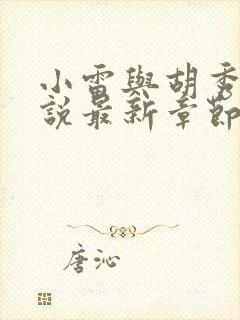 小雷與胡秀
說最新章節
唐沁